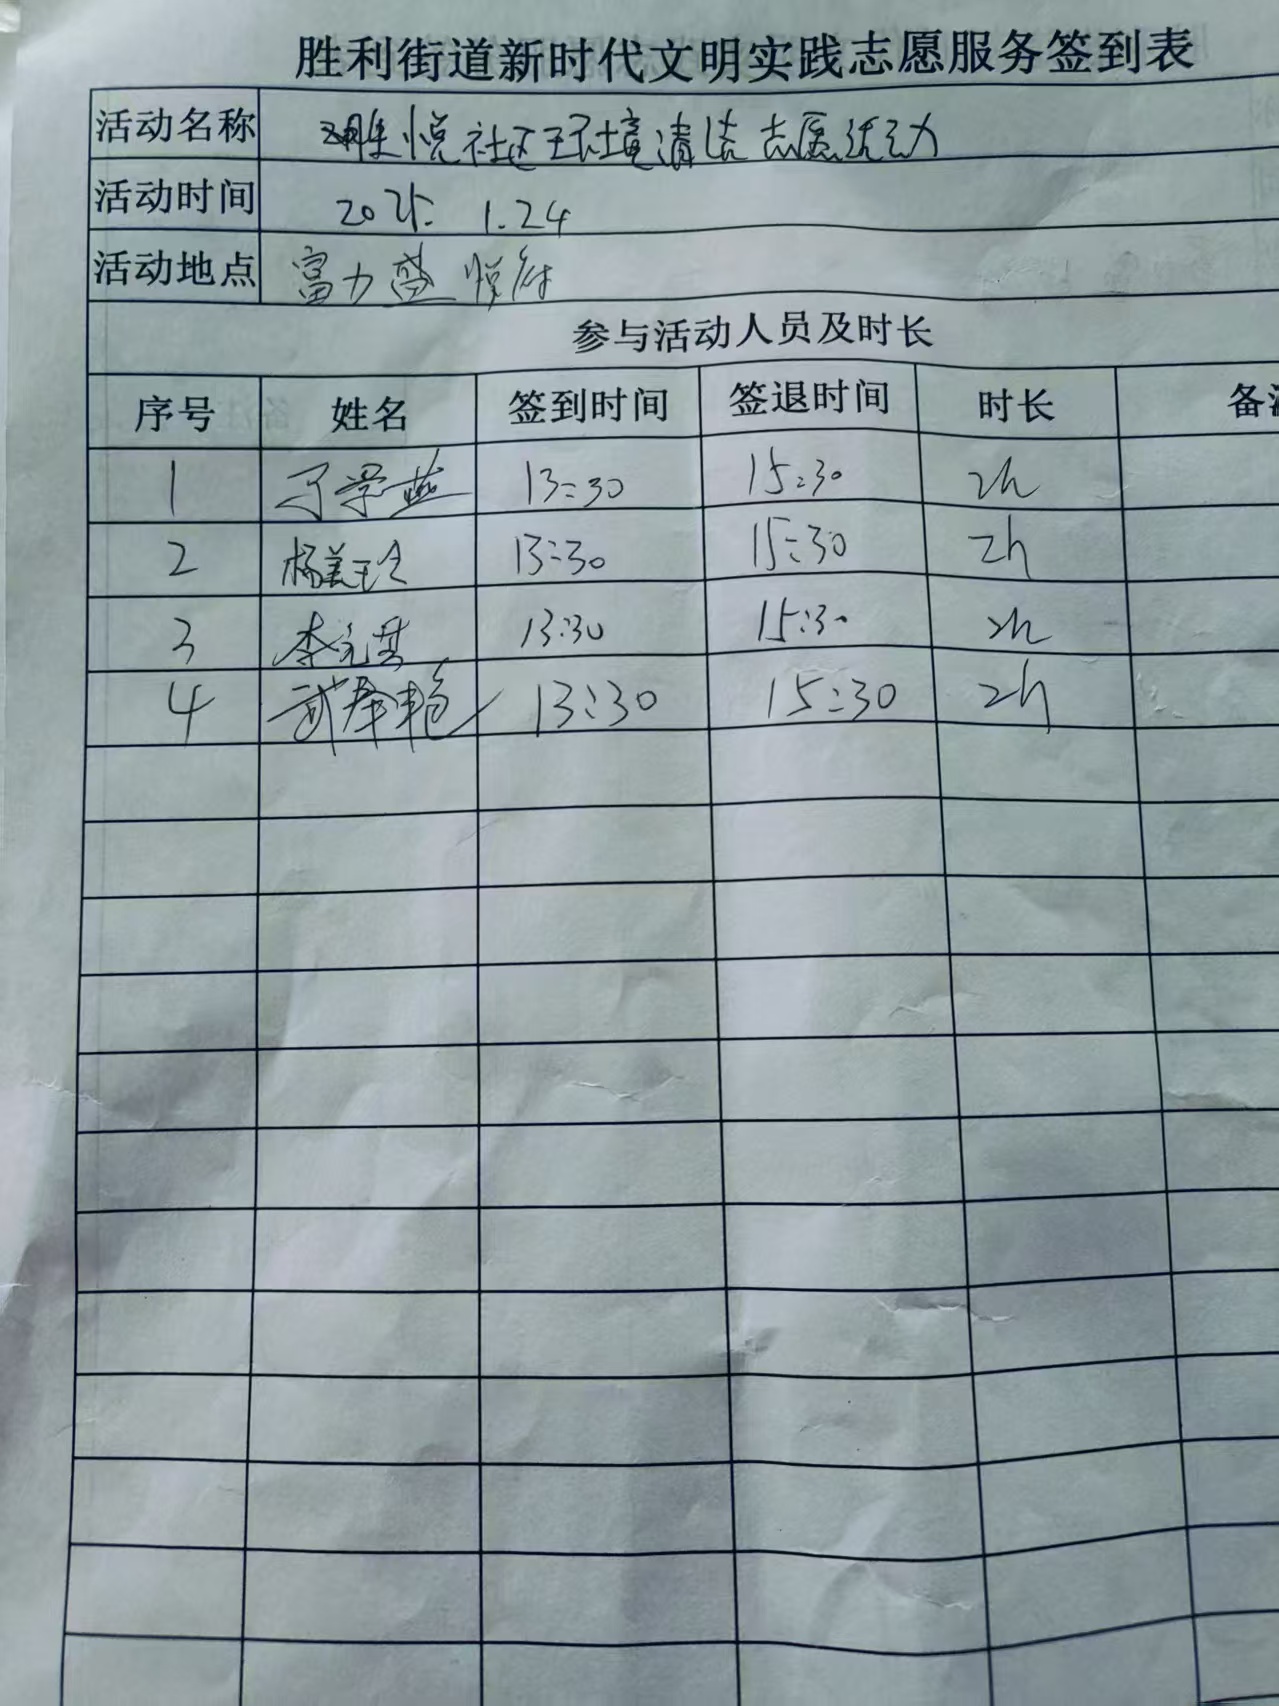 胜利街道新时代文明实践志愿服务签到表
活动名称 胜悦社区环境清洁志愿活动
活动时间 2025. 1.24
活动地点 富力盛悦府
参与活动人员及时长
序号 姓名 签到时间 签退时间 时长 备
1 丁学燕 13:30 15:30 2h
2 杨美玲 13:30 15:30 2h
3 李元其 13:30 15:30 2h
4 武春艳 13:30 15:30 2h